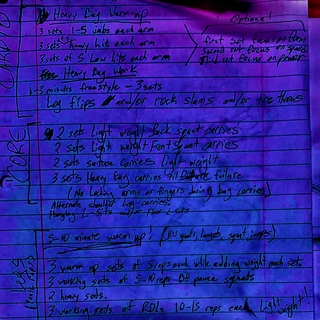 CARDIO
Heavy Bag Warm-up
Optional!
3 sets 1-5 jabs each arm
3 sets heavy hits each arm
3 sets of 5 Low hits each arm
first set focus on form
second set focus on speed
third set focus on power
Heavy Bag Work
3 minutes freestyle - 3 sets
Log flips and/or rock slams and/or tire throws
CORE
2 sets Light weight Back squat carries
2 sets Light weight Front squat carries
2 sets suitcase carries light weight
3 sets Heavy Bag carries till failure
(No Locking arms or fingers during bag carries)
Alternate shoulder Log carries
Hanging L-Sits and/or Floor L-Sits
LEGS
5-10 minute warm up! (SU yoats, lunges, squat jumps)
3 warm up sets of 5 reps each while adding weight each set.
3 working sets of 5-10 reps of pause squats
2 heavy sets.
3 working sets of RDLs 10-15 reps each Light weight!